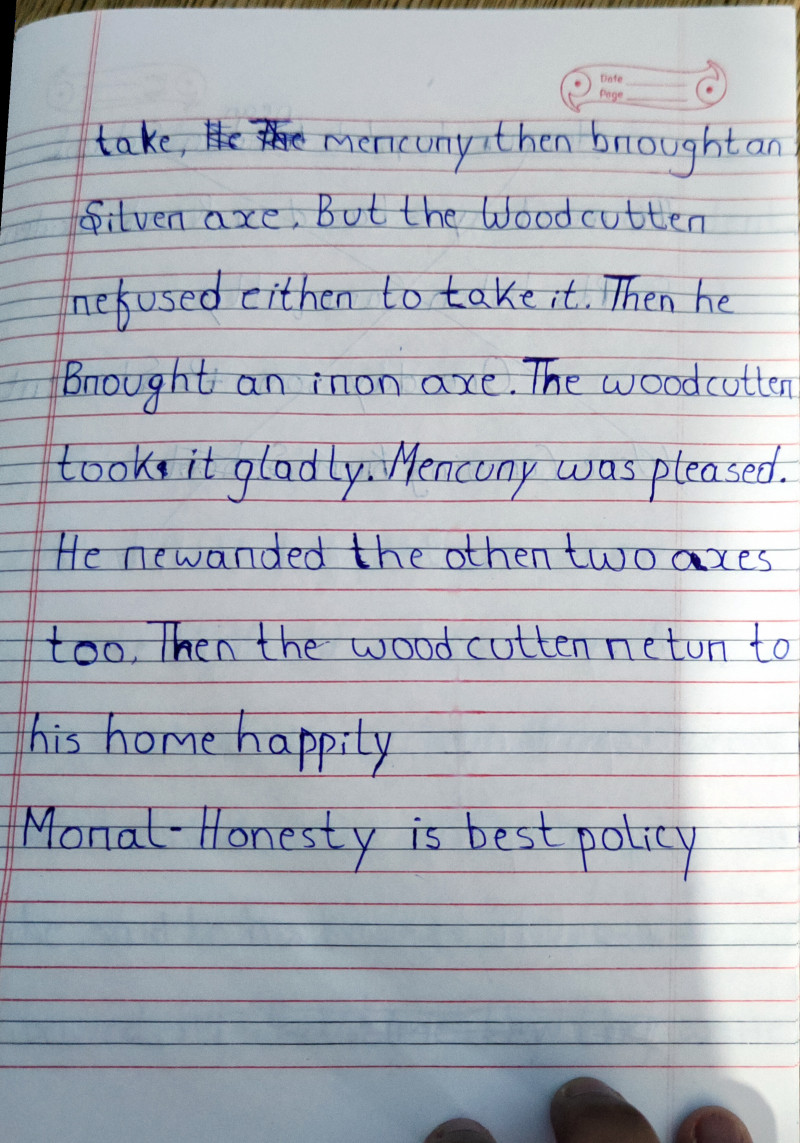 Date
Page
take, He The mercury then brought an
Silver axe. But the Woodcutter
refused either to take it. Then he
Brought an iron axe. The woodcutter
took it gladly. Mercury was pleased.
He rewarded the other two axes
too. Then the woodcutter retun to
his home happily
Moral - Honesty is best policy